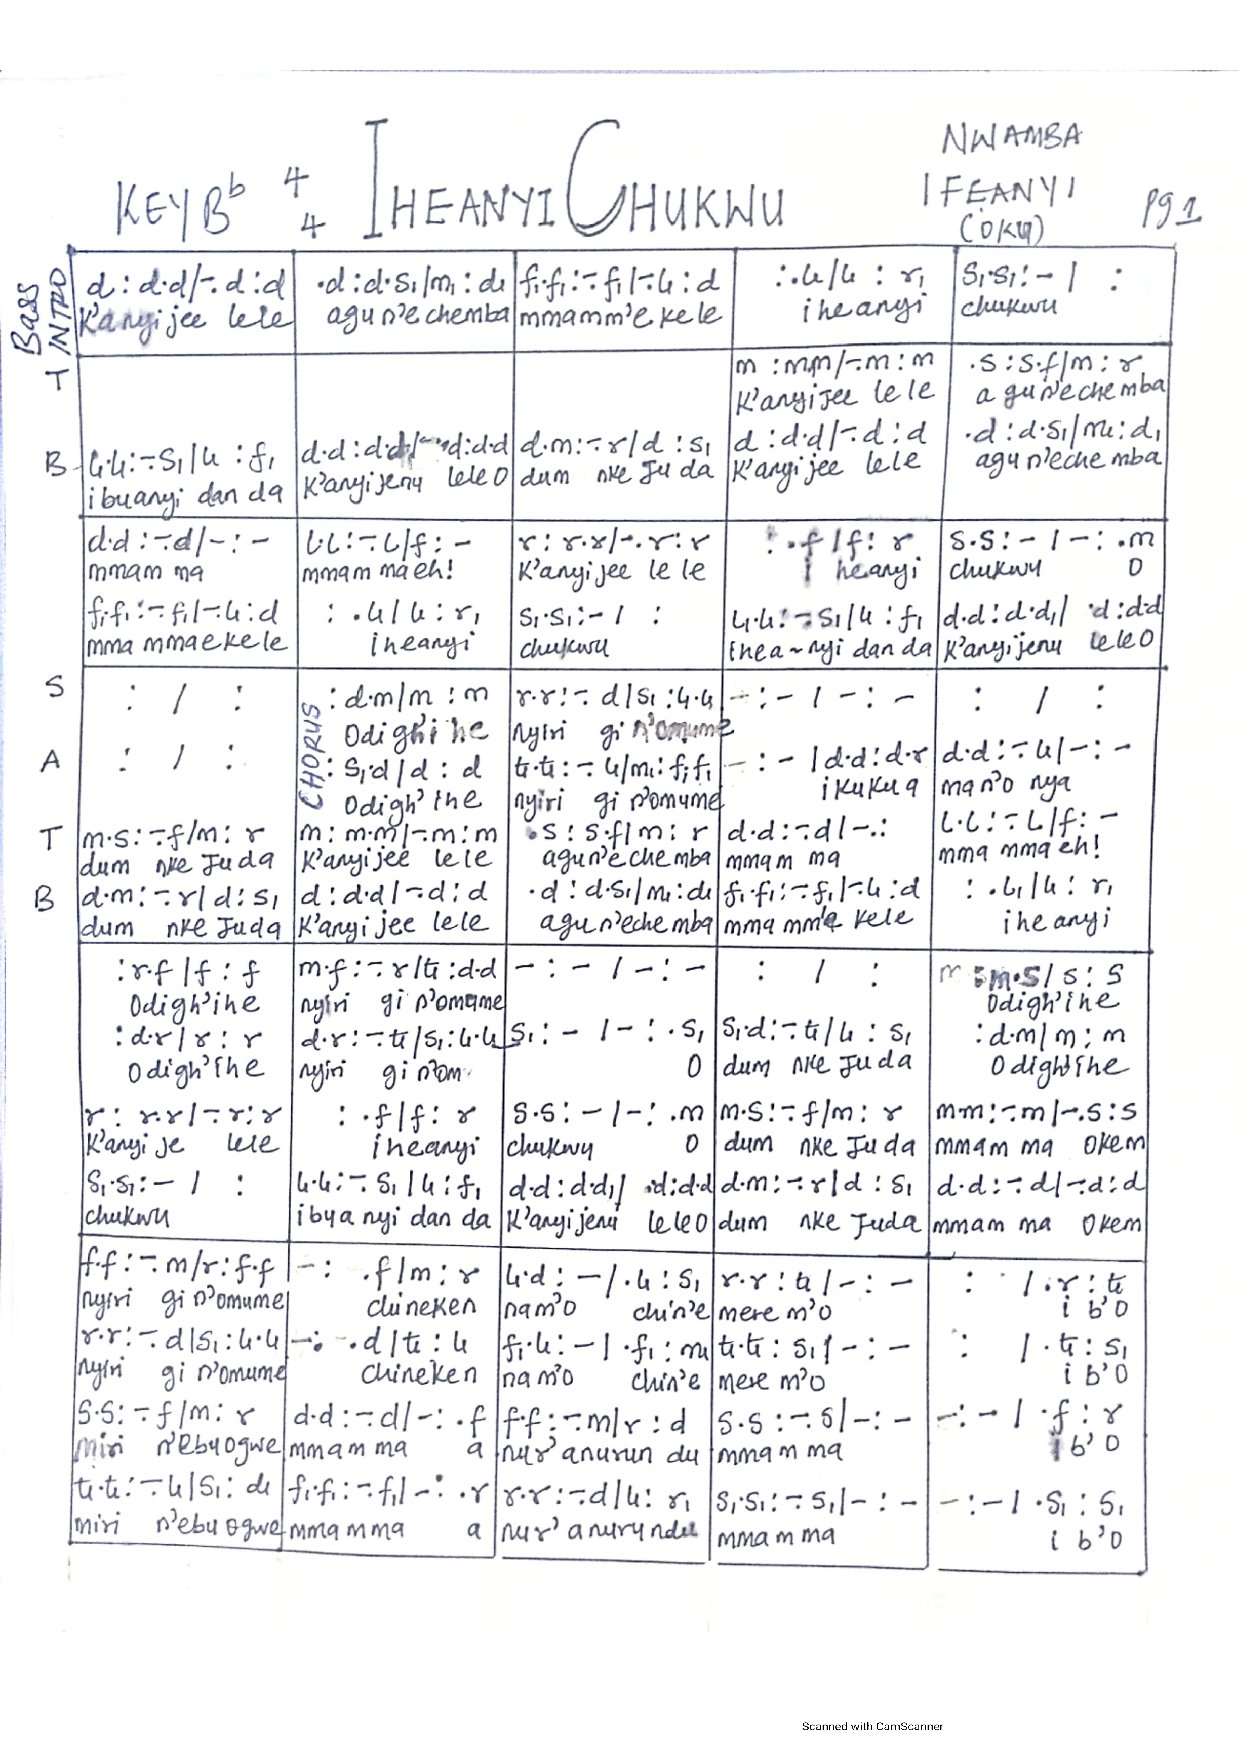 KEY Bb 4/4 IHEANYI CHUKWU NWAMBA IFEANYI (OKU) Pg 1
BASS INTRO
d : d.d/-. d : d | .d : d.s₁/m₁ : d₁ | f₁.f₁ :-. f₁/-. l₁ : d | : .l₁/l₁ : r₁ | s₁.s₁ : - / :
K'anyi jee lele | agu n'e chemba | mmamm'e kele | iheanyi | chukwu
T
m : m.m/-. m : m | .s : s.f/m : r
K'anyi jee lele | agu n'e che mba
B
l₁.l₁ :-. s₁/l₁ : f₁ | d.d : d.d₁/ .d : d.d | d.m :-. r/d : s₁ | d : d.d/-. d : d | .d : d.s₁/m₁ : d₁
ibu anyi dan da | K'anyi jenu lele O | dum nke Juda | K'anyi jee lele | agu n'eche mba
d.d :-. d/- : - | l.l :-. l/f : - | r : r.r/-. r : r | : .f/f : r | s.s : - / - : .m
mmam ma | mmam ma eh! | K'anyi jee le le | i heanyi | chukwu O
f₁.f₁ :-. f₁/-. l₁ : d | : .l₁/l₁ : r₁ | s₁.s₁ : - / : | l₁.l₁ :-. s₁/l₁ : f₁ | d.d : d.d₁/ .d : d.d
mma mma e kele | iheanyi | chukwu | ihea~nyi dan da | K'anyi jenu lele O
S
: / : | : d.m/m : m | r.r :-. d/s₁ : l₁.l₁ | - : - / - : - | : / :
CHORUS
Odigh'ihe | nyiri gi n'omume
A
: / : | : s₁.d/d : d | t₁.t₁ :-. l₁/m₁ : f₁.f₁ | - : - / d.d : d.r | d.d :-. l₁/- : -
Odigh'ihe | nyiri gi n'omume | ikuku a | ma n'o nya
T
m.s :-. f/m : r | m : m.m/-. m : m | .s : s.f/m : r | d.d :-. d/-. : | l.l :-. l/f : -
dum nke Juda | K'anyi jee lele | agu n'e chemba | mmam ma | mma mma eh!
B
d.m :-. r/d : s₁ | d : d.d/-. d : d | .d : d.s₁/m₁ : d₁ | f₁.f₁ :-. f₁/-. l₁ : d | : .l₁/l₁ : r₁
dum nke Juda | K'anyi jee lele | agu n'echemba | mma mm'a kele | iheanyi
: r.f/f : f | m.f :-. r/t₁ : d.d | - : - / - : - | : / : | : m.s/s : s
Odigh'ihe | nyiri gi n'omume | Odigh'ihe
: d.r/r : r | d.r :-. t₁/s₁ : l₁.l₁ | s₁ : - / - : .s₁ | s₁.d :-. t₁/l₁ : s₁ | : d.m/m : m
Odigh'ihe | nyiri gi n'om | O | dum nke Juda | Odigh'ihe
r : r.r/-. r : r | : .f/f : r | s.s : - / - : .m | m.s :-. f/m : r | m.m :-. m/-. s : s
K'anyi je lele | iheanyi | chukwu O | dum nke Juda | mmam ma Okem
s₁.s₁ : - / : | l₁.l₁ :-. s₁/l₁ : f₁ | d.d : d.d₁/ .d : d.d | d.m :-. r/d : s₁ | d.d :-. d/-. d : d
chukwu | ibua nyi dan da | K'anyi jenu lele O | dum nke Juda | mmam ma Okem
f.f :-. m/r : f.f | - : .f/m : r | l₁.d : - / .l₁ : s₁ | r.r : t₁ / - : - | : / .r : t₁
nyiri gi n'omume | chineken | nam'o chin'e | mere m'o | i b'O
r.r :-. d/s₁ : l₁.l₁ | - : .d/t₁ : l₁ | f₁.l₁ : - / .f₁ : m₁ | t₁.t₁ : s₁ / - : - | : / .t₁ : s₁
nyiri gi n'omume | chineken | nam'o chin'e | mere m'o | i b'O
s.s :-. f/m : r | d.d :-. d/- : .f | f.f :-. m/r : d | s.s :-. s/- : - | - : - / .f : r
miri n'ebu ogwe | mmam ma a | nur'anurun du | mmam ma | i b'O
t₁.t₁ :-. l₁/s₁ : d₁ | f₁.f₁ :-. f₁/- : .r | r.r :-. d/l₁ : r₁ | s₁.s₁ :-. s₁/- : - | - : - / .s₁ : s₁
miri n'ebu ogwe | mma mma a | nur'anurundu | mmam ma | i b'O
Scanned with CamScanner